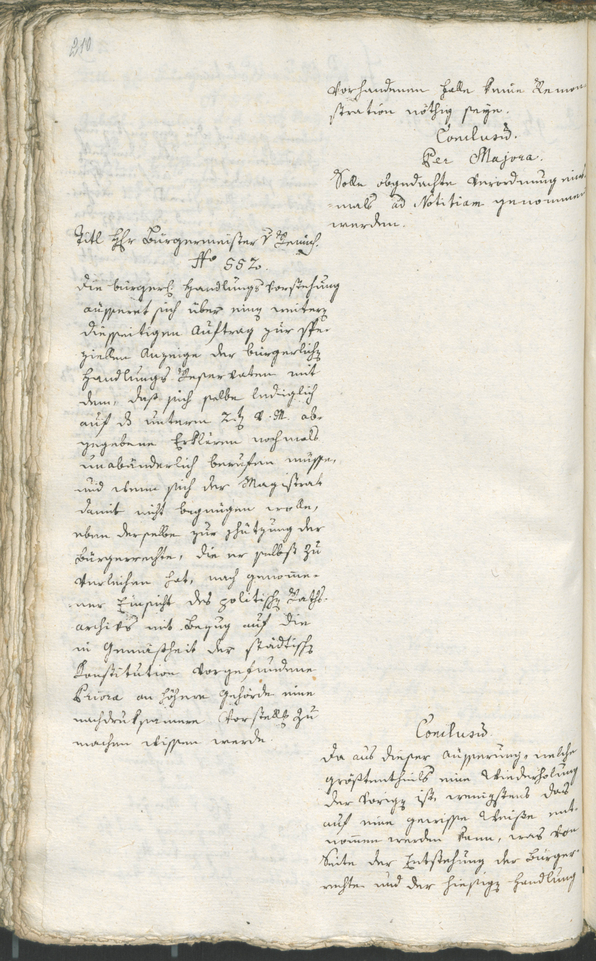 210
vorhandenen Falle keine Remon
stration nöthig seye.
Conclusum.
Per Majora.
Solle obgedachte Verordnung einst
mals ad Notitiam genommen
werden.
Titl Hr Bürgermeister v
No 552.
die bürgerl. Handlungs Vorstehung
äusseret sich über einen weitern
diesseitigen Auftrag zur spe-
ziellen Anzeige der bürgerlichen
Handlungs Reservaten mit
dem, daß sich selbe lediglich
auf die unterm 2ten v. M. ab-
gegebene Erklären nochmals
unabänderlich berufen müsse,
und wenn sich der Magistrat
damit nicht begnügen wolle,
eben derselbe zur Schützung der
Bürgerrechte, die er selbst zu
verleihen hat, nach genomme-
ner Einsicht des politischen Raths-
archivs mit Bezug auf die
in Gemäßheit der städtischen
Konstitution vorgefundene
Priora an höhere Behörde eine
nachdruksamere Vorstellung zu
machen wissen werde
Conclusum
Da aus dieser Äusserung, welche
größtentheils eine Wiederholung
der vorigen ist, wenigstens das
auf eine gewisse Weise ent-
nommen werden kann, was von
Seite der Entstehung der Bürger-
rechte und der hiesigen Handlung